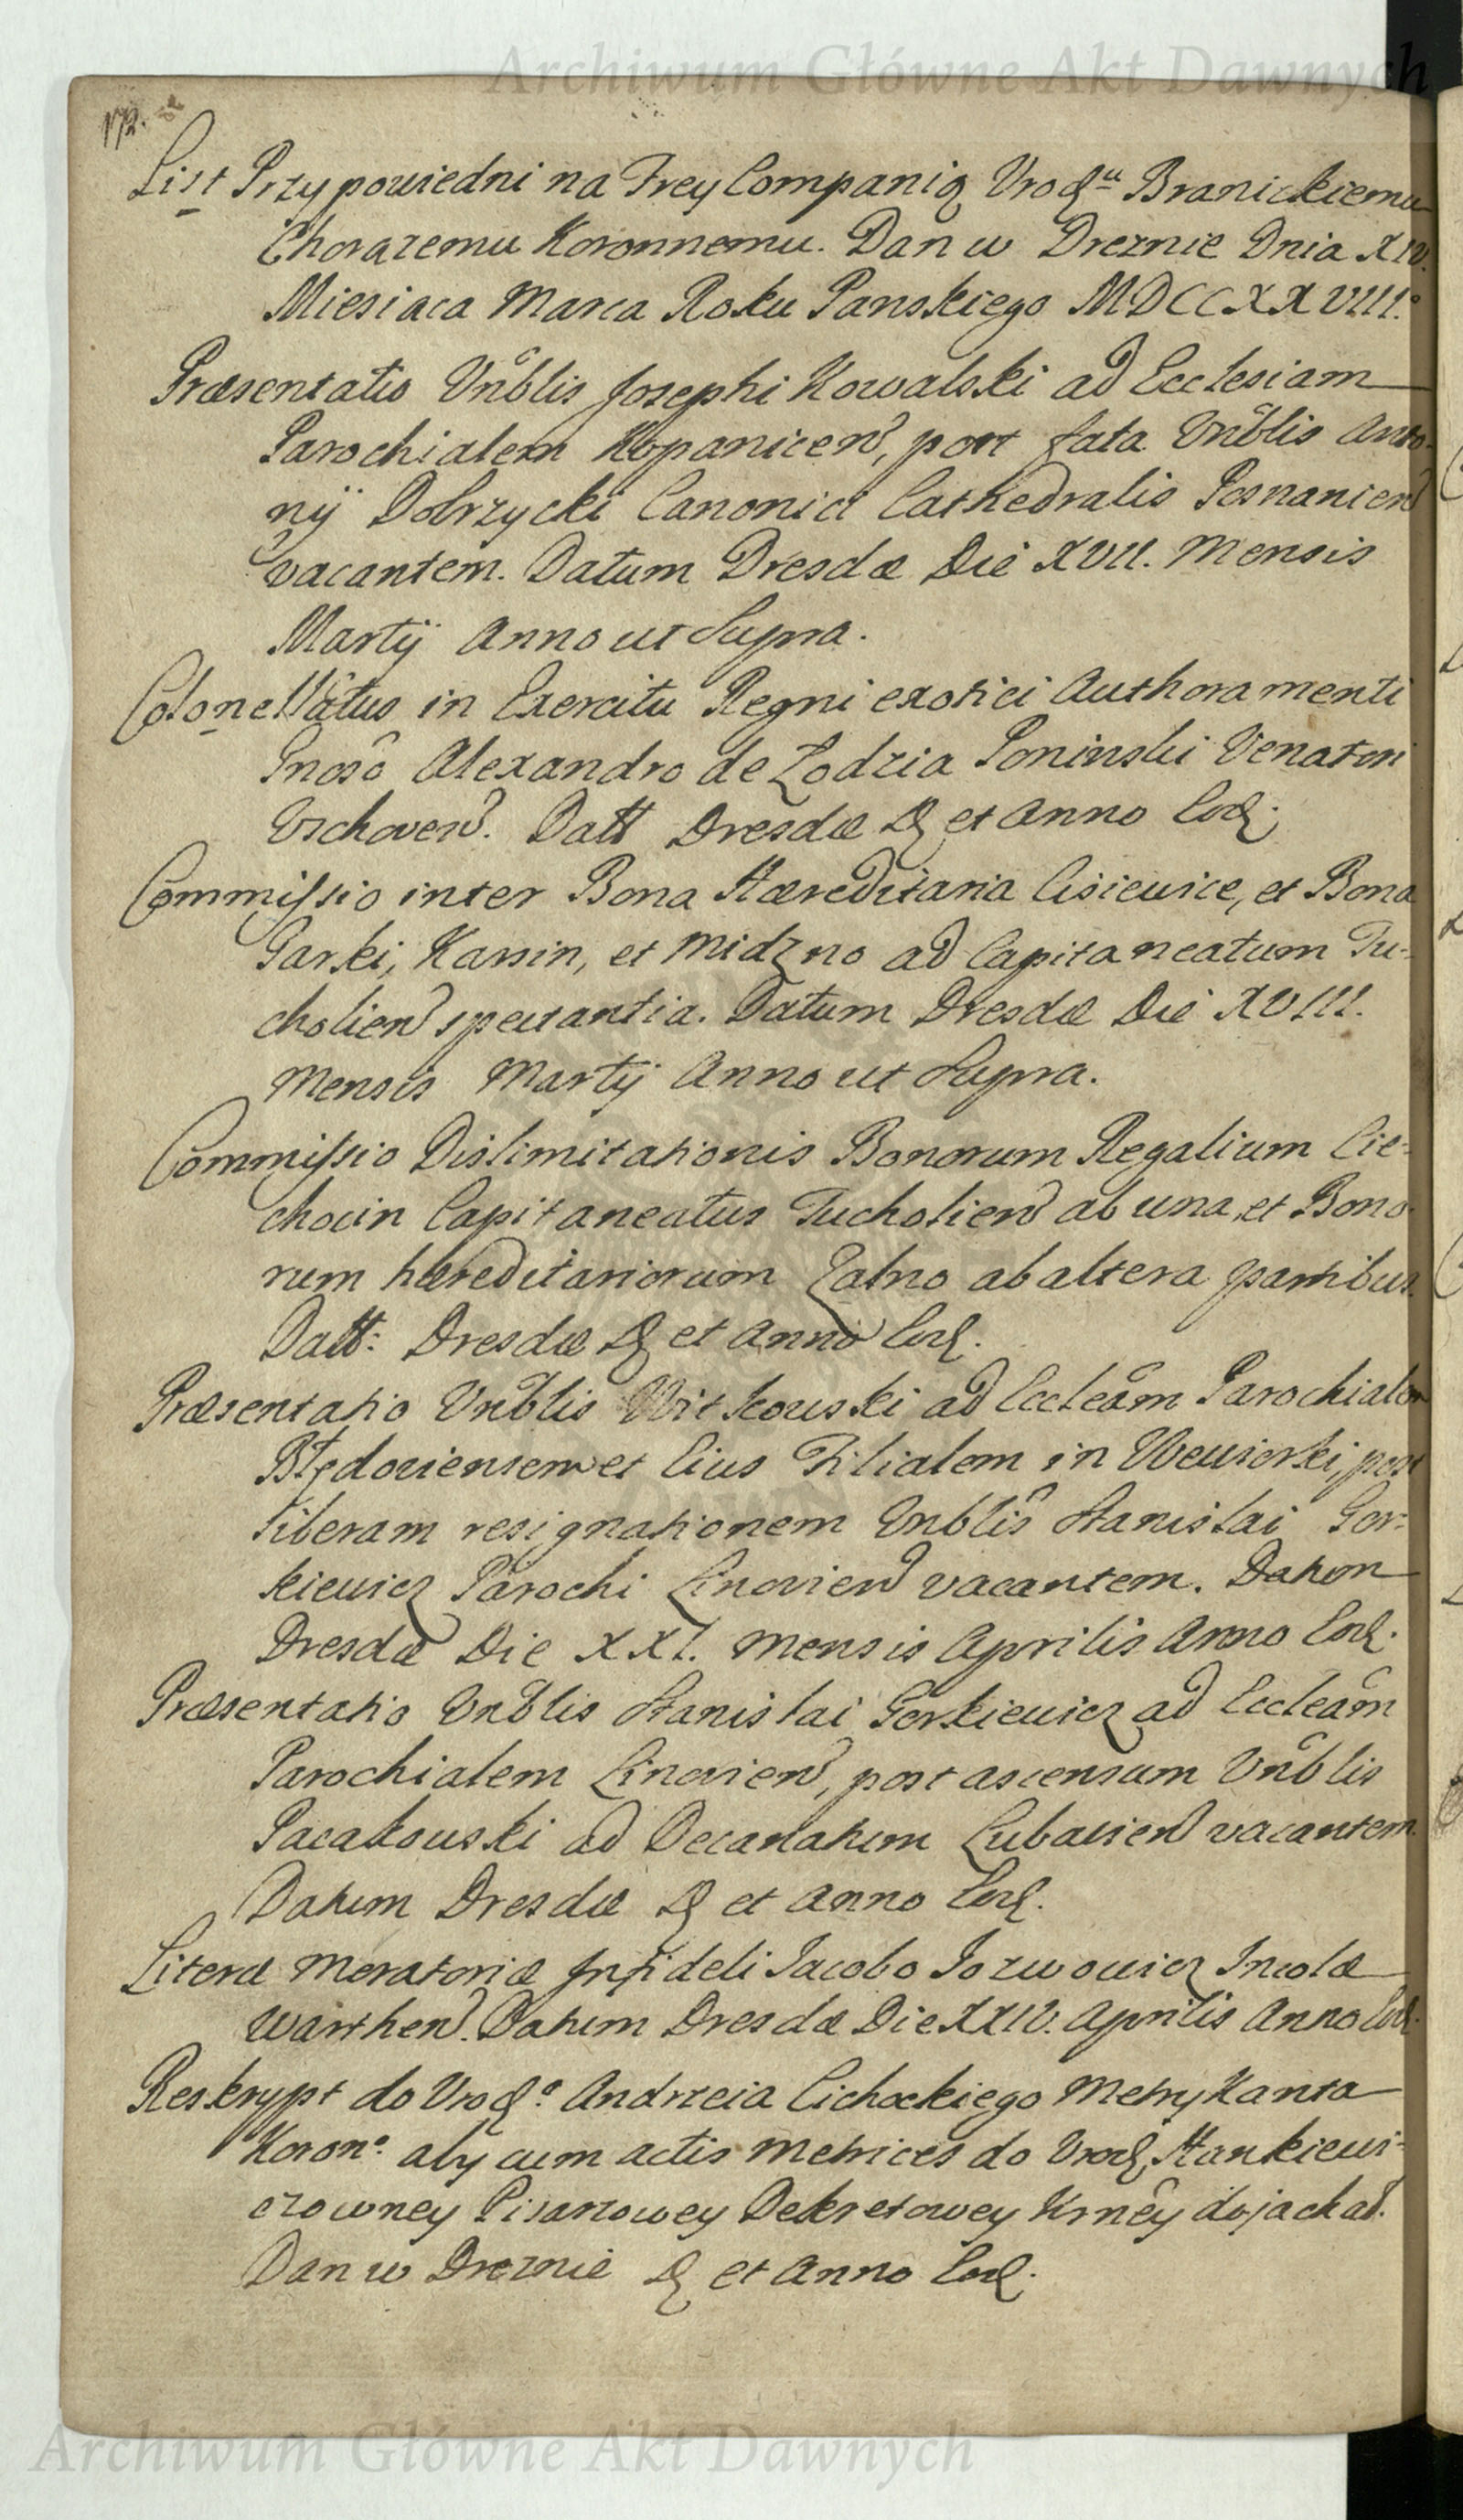 Archiwum Główne Akt Dawnych
172.
List Przypowiedni na Frey Companią Urodz. Branickiemu
Chorązemu Koronnemu. Dan w Dreznie Dnia XIV.
Miesiaca Marca Roku Panskiego MDCCXXVIII.
Præsentatio Vnblis Josephi Kowalski ad Ecclesiam
Parochialem Kopanicen, post fata Vnblis Anto-
nij Dobrzycki Canonici Cathedralis Posnanien
vacantem. Datum Dresdæ Die XVII. Mensis
Martij Anno ut Supra.
Colonellatus in Exercitu Regni exotici Authoramenti
Gnoso Alexandro de Lodzia Poninski Venatori
Wschoven. Datt Dresdæ D. et Anno Eod.
Commissio inter Bona Hæreditaria Cisiewice, et Bona
Garki, Karsin, et Midzno ad Capitaneatum Tu-
cholien spectantia. Datum Dresdæ Die XVIII.
Mensis Martij Anno ut Supra.
Commissio Dislimitationis Bonorum Regalium Cie-
chocin Capitaneatus Tucholien ab una, et Bono-
rum hæreditariorum Zalno ab altera partibus.
Datt: Dresdæ D. et Anno Eod.
Præsentatio Vnblis Witkowski ad Eccleam Parochialem
Błędoviensem et Eius Filialem in Wewiorki, post
liberam resignationem Vnblis Stanislai Gor-
kiewicz Parochi Linovien vacantem. Datum
Dresdæ Die XXI. Mensis Aprilis Anno Eod.
Præsentatio Vnblis Stanislai Gorkiewicz ad Eccleam
Parochialem Linovien, post ascensum Vnblis
Pacakowski ad Decanatum Lubavien vacantem.
Datum Dresdæ D. et Anno Eod.
Literæ Moratoriæ Infideli Jacobo Jozwowicz Incolæ
Warthen. Datum Dresdæ Die XXIV. Aprilis Anno Eod.
Reskrypt do Urodz. Andrzeia Cichockiego Metrykanta
Koron. aby cum actis Metrices do Urodz. Stankiewi-
czowney Pisarzowey Dekretowey Krney dojachał.
Dan w Dreznie D. et Anno Eod.
Archiwum Główne Akt Dawnych